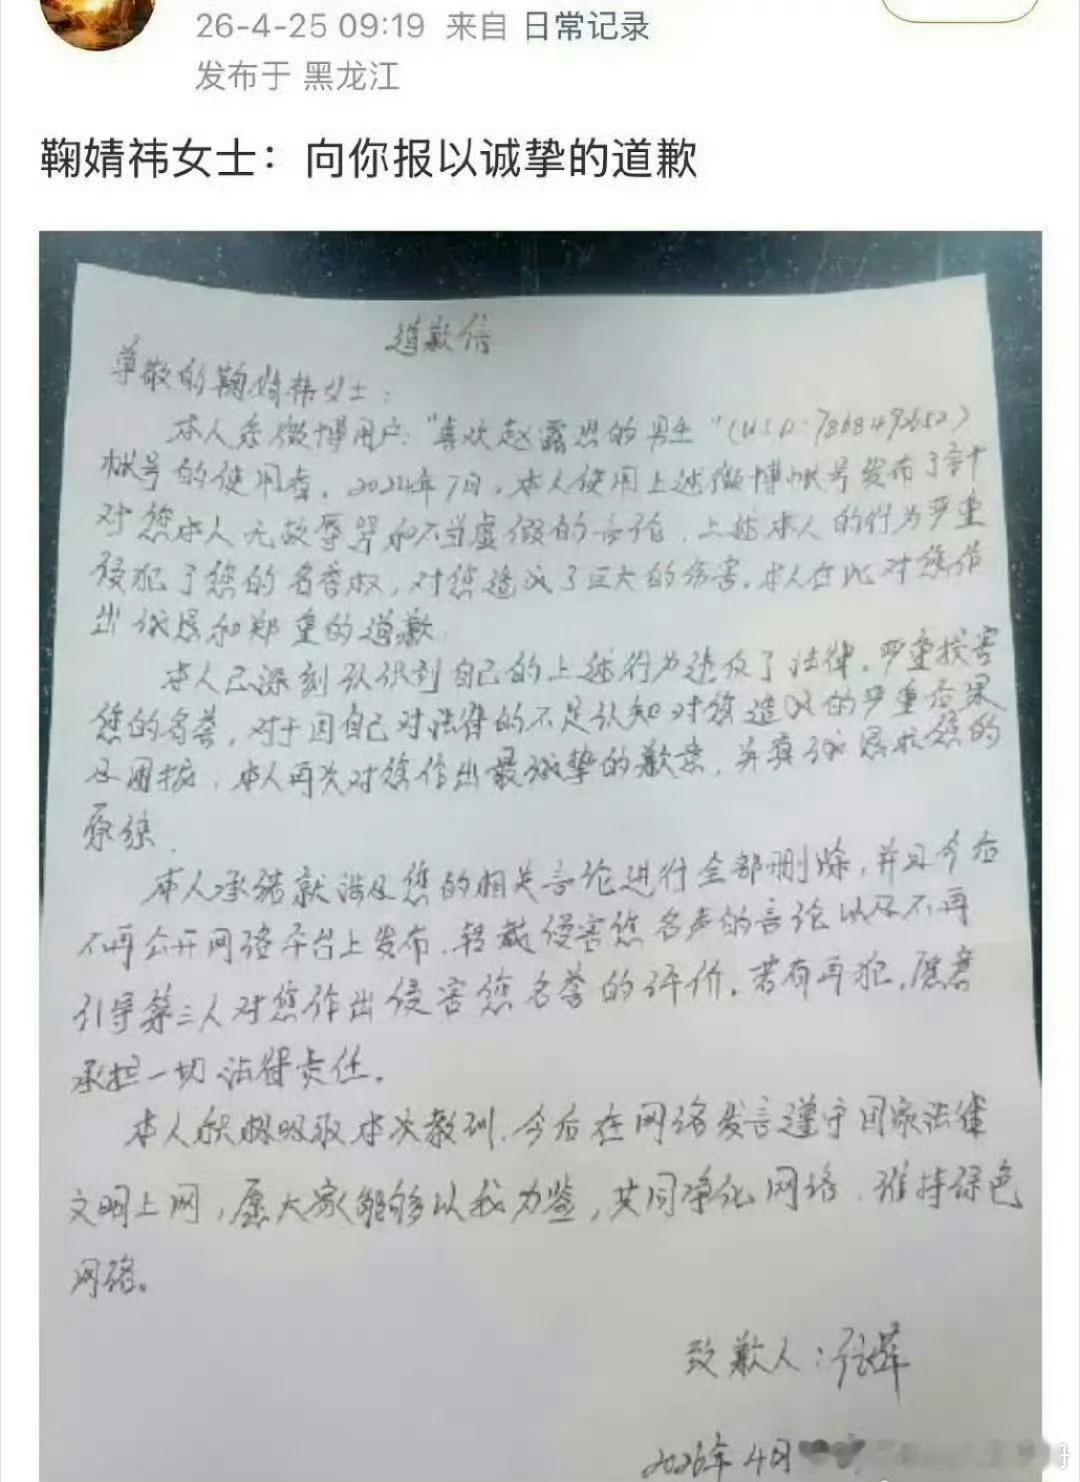 26-4-25 09:19 来自 日常记录
发布于 黑龙江
鞠婧祎女士：向你报以诚挚的道歉
道歉信
尊敬的鞠婧祎女士：
本人系微博用户："喜欢赵露思的男生"(USD:7868492652)
帐号的使用者。2024年7月，本人使用上述微博帐号发布了针
对您本人无故辱骂和不当虚假的言论，上述本人的行为严重
侵犯了您的名誉权，对您造成了巨大的伤害。本人在此对您作
出诚恳和郑重的道歉
本人已深刻认识到自己的上述行为违反了法律，严重损害
您的名誉，对于因自己对法律的不足认知对您造成的严重后果
及困扰，本人再次对您作出最诚挚的歉意，并真诚恳求您的
原谅.
本人承诺就涉及您的相关言论进行全部删除，并且今后
不再公开网络平台上发布、转载侵害您名声的言论以及不再
引导第三人对您作出侵害您名誉的评价。若有再犯，愿意
承担一切法律责任。
本人积极吸取本次教训，今后在网络发言遵守国家法律
文明上网，愿大家能够以我为鉴，共同净化网络，维持绿色
网络。
致歉人：
2026年4月